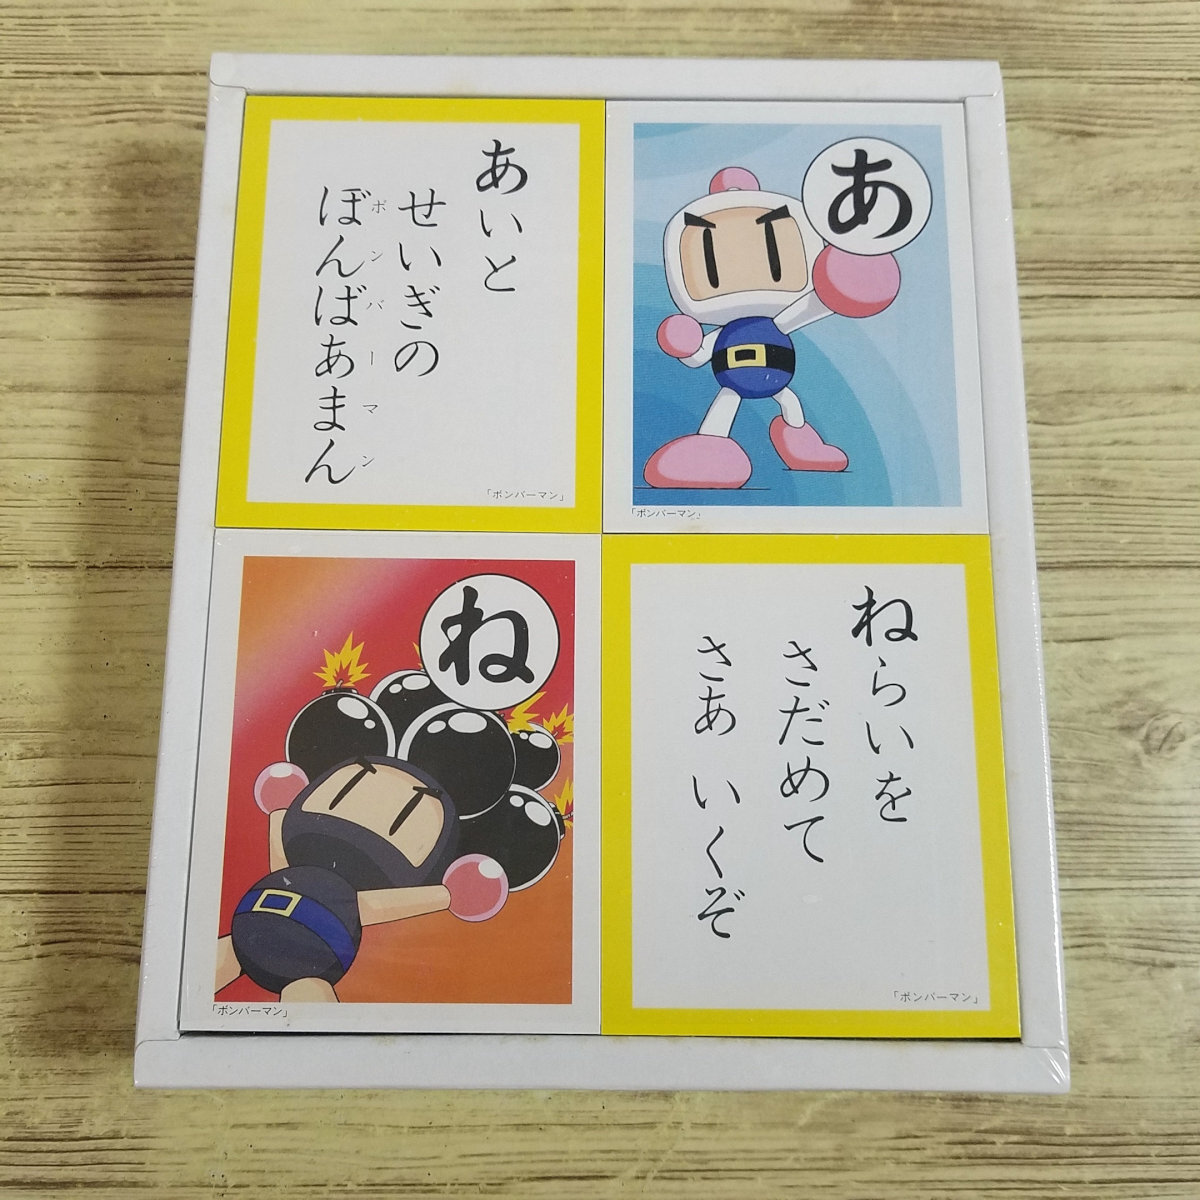 あいと
せいぎの
ぼんばあまん
ボンバーマン
「ボンバーマン」
あ
「ボンバーマン」
ね
「ボンバーマン」
ねらいを
さだめて
さあ いくぞ
「ボンバーマン」